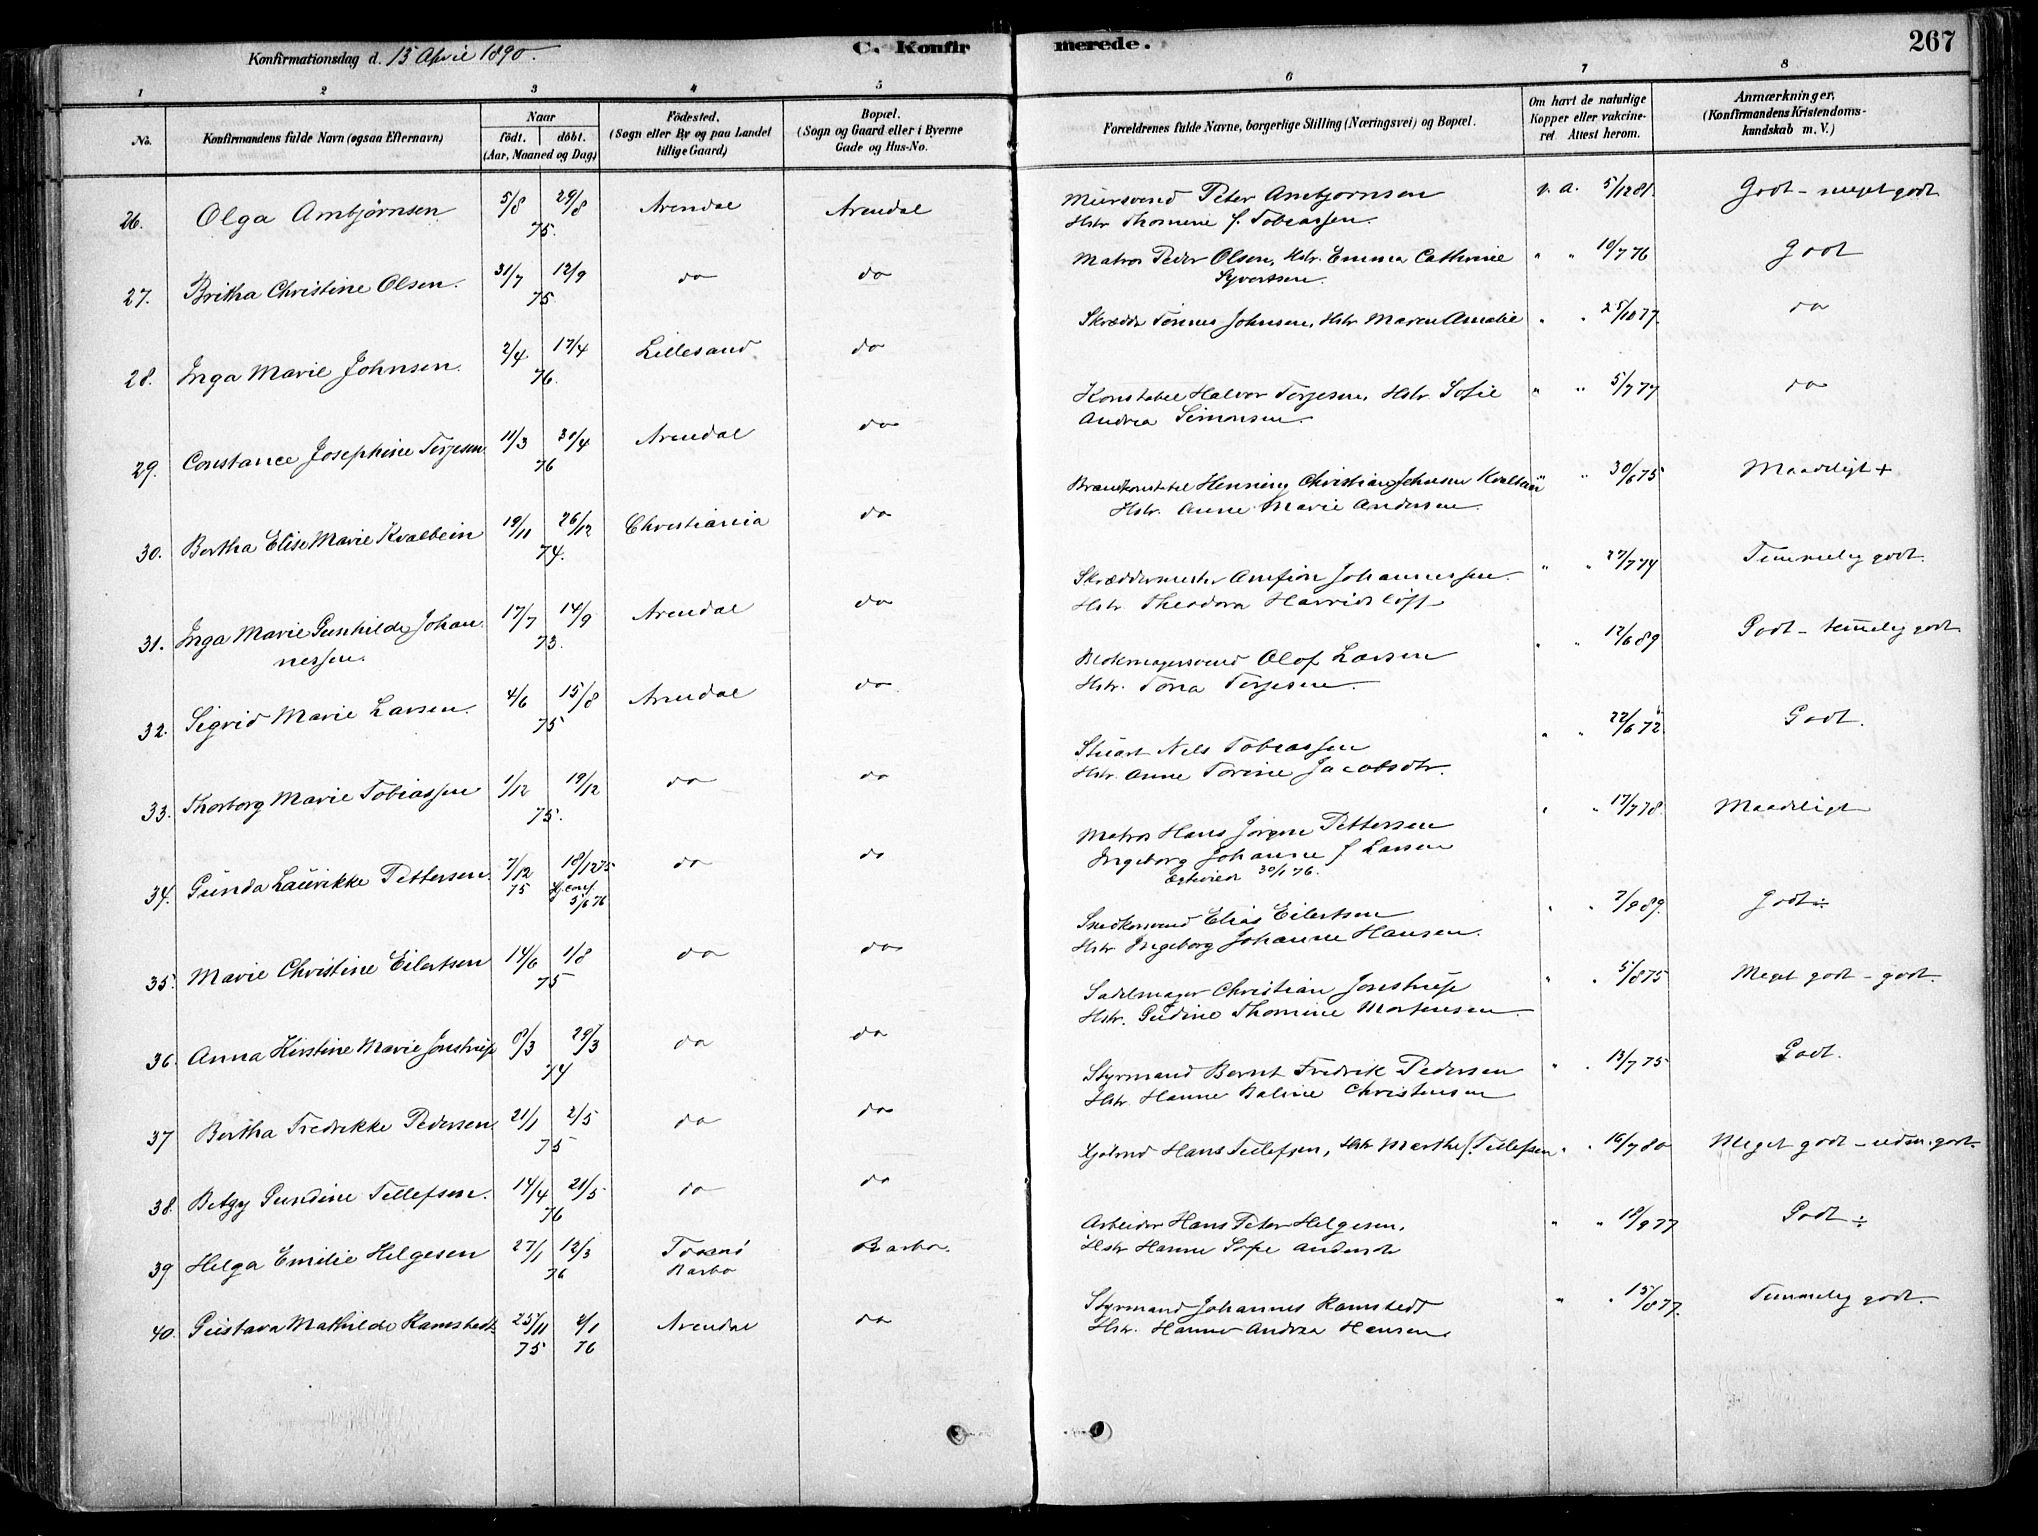 Konfirmationsdag d. 13 April 1890.
C. Konfirmerede.
267
1 2 3 4 5 6 7 8
No.
Konfirmandens fulde Navn (ogsaa Efternavn)
Naar
födt. döbt.
(Aar, Maaned og Dag)
Födested.
(Sogn eller By og paa Landet
tillige Gaard)
Bopæl.
(Sogn og Gaard eller i Byerne
Gade og Hus-No.
Forældrenes fulde Navne, borgerlige Stilling (Næringsvei) og Bopæl.
Om havt de naturlige
Kopper eller vakcine-
ret. Attest herom.
Anmærkninger.
(Konfirmandens Kristendoms-
kundskab m. V.)
26. Olga Ambjørnsen 5/8 29/8 75. Arendal Arendal
Muersvend Peter Ambjørnsen v. a. 5/12 81. Godt - meget godt
Hstr Thomine f. Tobiassen.
27. Britha Christine Olsen. 31/7 12/9 75 do do
Matros Peder Olsen, Hstr. Emma Cathrine " " 10/7 76 Godt
Syvertsen.
28. Inga Marie Johnsen. 2/4. 17/4 76. Lillesand do
Skrædder Tønnes Johnsen, Hstr Maren Amalie " " 25/10 77. do
29. Constance Josephine Terjesen 11/3 30/4 76 Arendal do
Konstabel Halvor Terjesen, Hstr. Sofie " " 5/7 77 do
Andrea Simonsen.
30. Bertha Elise Marie Kvalbein 19/11 26/12 74. Christiania do
Brandkonstabel Henning Christian Johnsen Kvalbein " " 30/6 75 Maadeligt +
Hstr. Anne Marie Andersen.
31. Inga Marie Gunhilde Johan 17/7 14/9 73. Arendal do
nessen.
Skræddermester Amfion Johannessen. " " 27/7 74 Temmelig godt.
Hstr Theodora
32. Sigrid Marie Larsen. 4/6 15/8 75 Arendal do
Blokmagersvend Olof Larsen " " 12/6 89 Godt - temelig godt
Hstr. Tora Terjesen.
33. Thorborg Marie Tobiassen 1/12 19/12 75. do do
Stuart Nels Tobiassen " " 22/6 72. Godt.
Hstr. Anne Torine Jacobsdtr.
34. Gunda Laurikke Pettersen. 7/12 75 18/12 75 Hj. conf 5/6 76 do do
Matros Hans Jørgen Pettersen " " 17/7 78. Maadeligt
Ingeborg Johanne f Larsen
30/1 76.
35. Marie Christine Eilertsen 14/6 1/8 75 do do
Snedkersvend Elias Eilertsen " " 2/9 89. Godt ÷
Hstr Ingeborg Johanne Hansen.
36. Anna Kirstine Marie Jonstrup 8/3 29/3 74 do do
Sadelmager Christian Jonstrup " " 5/8 75 Meget godt - godt.
Hstr. Gudine Thomine Mortensen
37 Bertha Fredrikke Pedersen 21/1 2/5 75 do do
Styrmand Bernt Fredrik Pedersen " " 13/7 75 Godt.
Hstr. Hanne Baline Christensen
38. Betzy Gundine Tellefsen. 14/4 21/5 76 do do
Hans Tellefsen, Hstr Marthe f. Tellefsen " " 16/7 80 Meget godt - udm. godt.
39 Helga Emilie Helgesen 27/1 12/3 76 Tromø Barbo.
Barbo
Arbeider Hans Peter Helgesen. " " 18/9 77 Godt ÷
Hstr Hanne Sofie Andersdtr
40. Gustava Mathilde Ramstedt 25/11 75 2/1 76 Arendal do
Styrmand Johannes Ramstedt " " 15/8 77. Temmelig godt.
Hstr. Hanne Andrea Hansen.